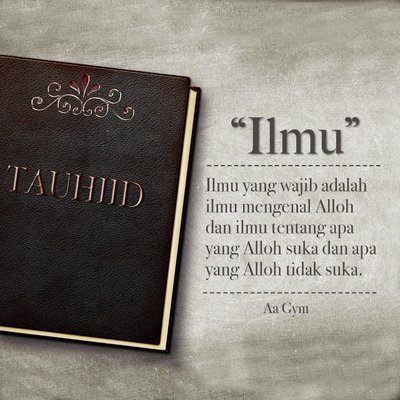 TAUHIID
“Ilmu”
Ilmu yang wajib adalah
ilmu mengenal Alloh
dan ilmu tentang apa
yang Alloh suka dan apa
yang Alloh tidak suka.
Aa Gym